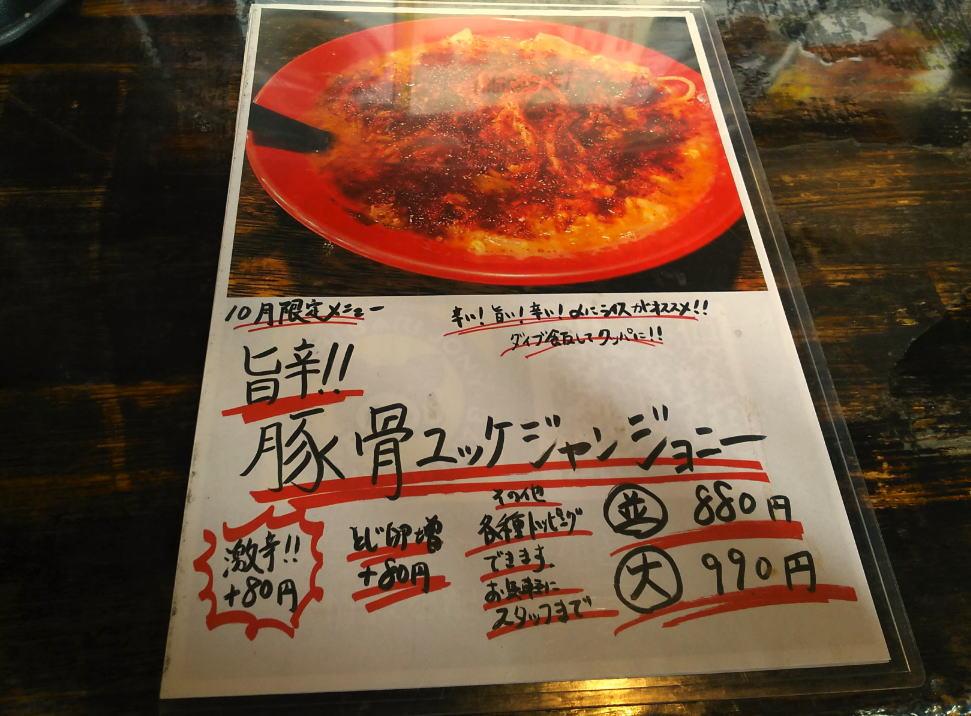 10月限定メニュー
辛い!旨い!辛い!〆にライスがオススメ!!
ダイブ飯してクッパに!!
旨辛!!
豚骨ユッケジャンジョニー
激辛!!
+80円
とじ卵増
+80円
その他
各種トッピング
できます。
お気軽に
スタッフまで
並 880円
大 990円